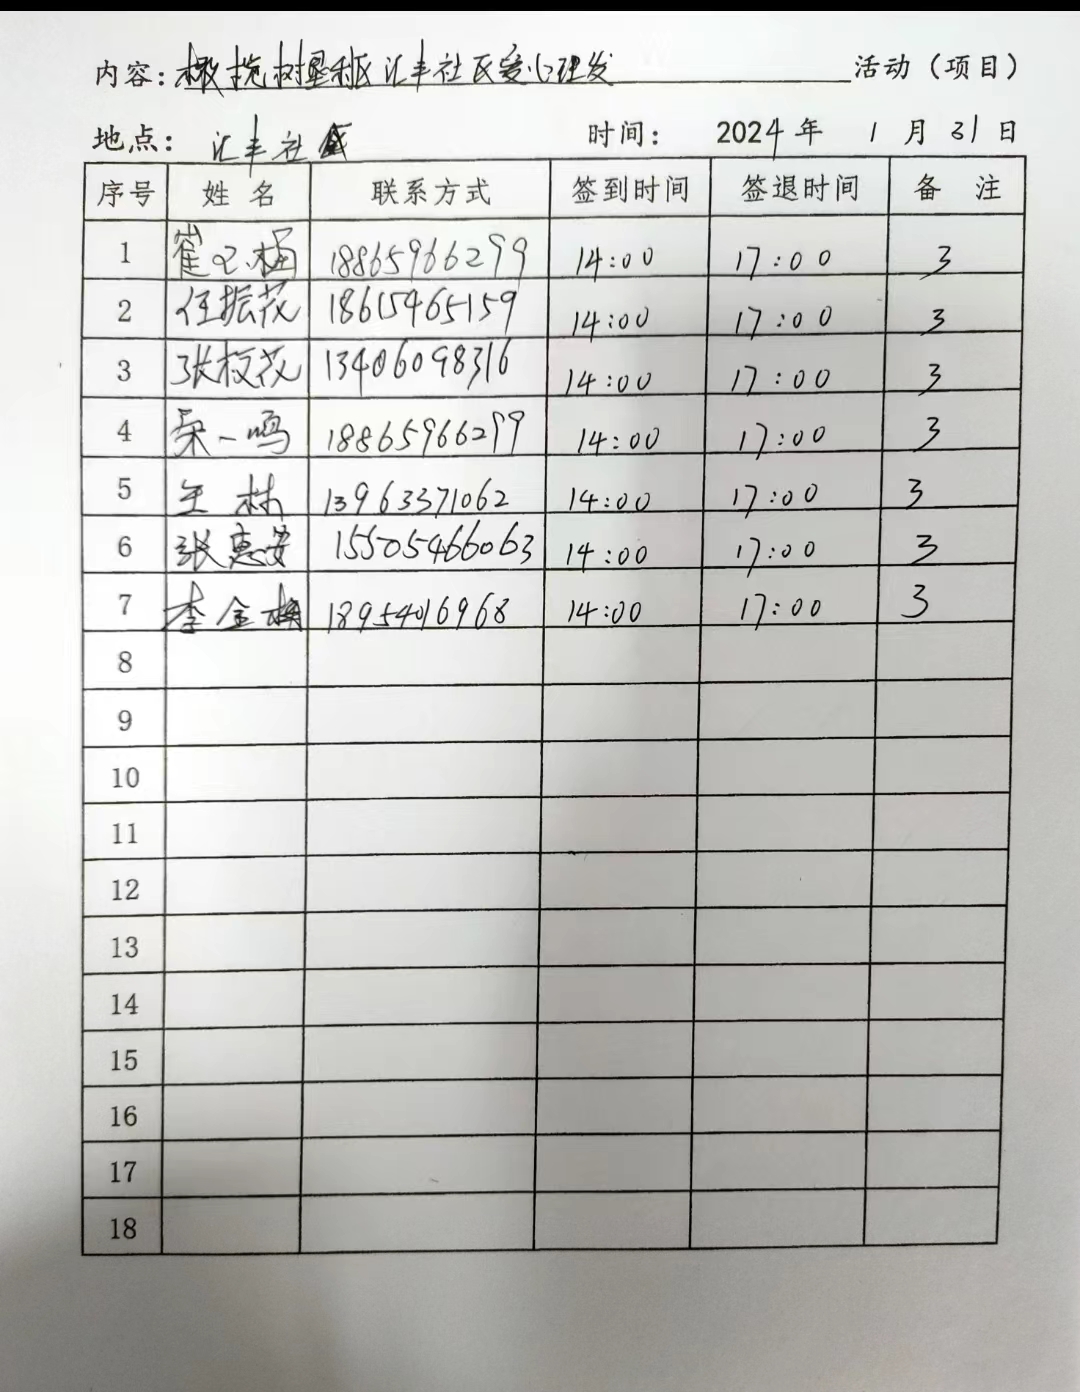 内容:橄榄树垦利区汇丰社区爱心理发 活动（项目）
地点: 汇丰社 时间: 2024年 1 月 31 日
序号 姓名 联系方式 签到时间 签退时间 备 注
1 崔 18865966299 14:00 17:00 3
2 任振花 18615465159 14:00 17:00 3
3 张枝花 13406098316 14:00 17:00 3
4 一鸣 18865966299 14:00 17:00 3
5 王林 13963371062 14:00 17:00 3
6 张惠芳 15505466063 14:00 17:00 3
7 李金梅 18954016968 14:00 17:00 3
8
9
10
11
12
13
14
15
16
17
18